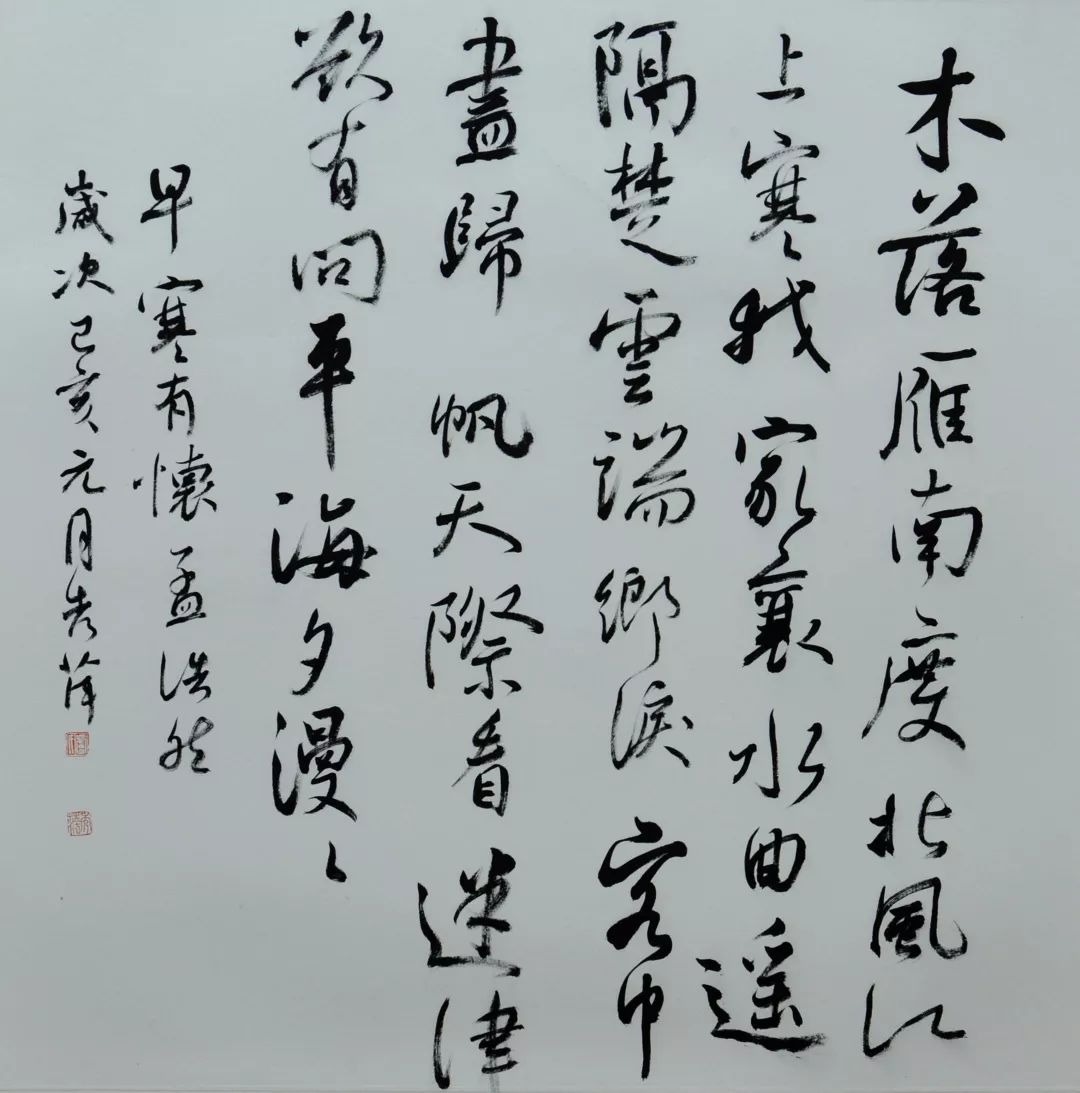 木落雁南度北風江
上寒我家襄水曲遥
隔楚雲端鄉淚客中
盡歸帆天際看迷津
欲有問平海夕漫〻
早寒有懷孟浩然
歲次己亥元月